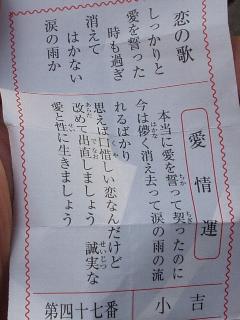 恋の歌
しっかりと
愛を誓った
時も過ぎ
消えて
はかない
涙の雨か
愛情運
本当に愛を誓って契ったのに
今は儚く消え去って涙の雨の流
れるばかり
思えば口惜しい恋なんだけど
改めて出直しましょう 誠実な
愛と性に生きましょう
小吉
第四十七番